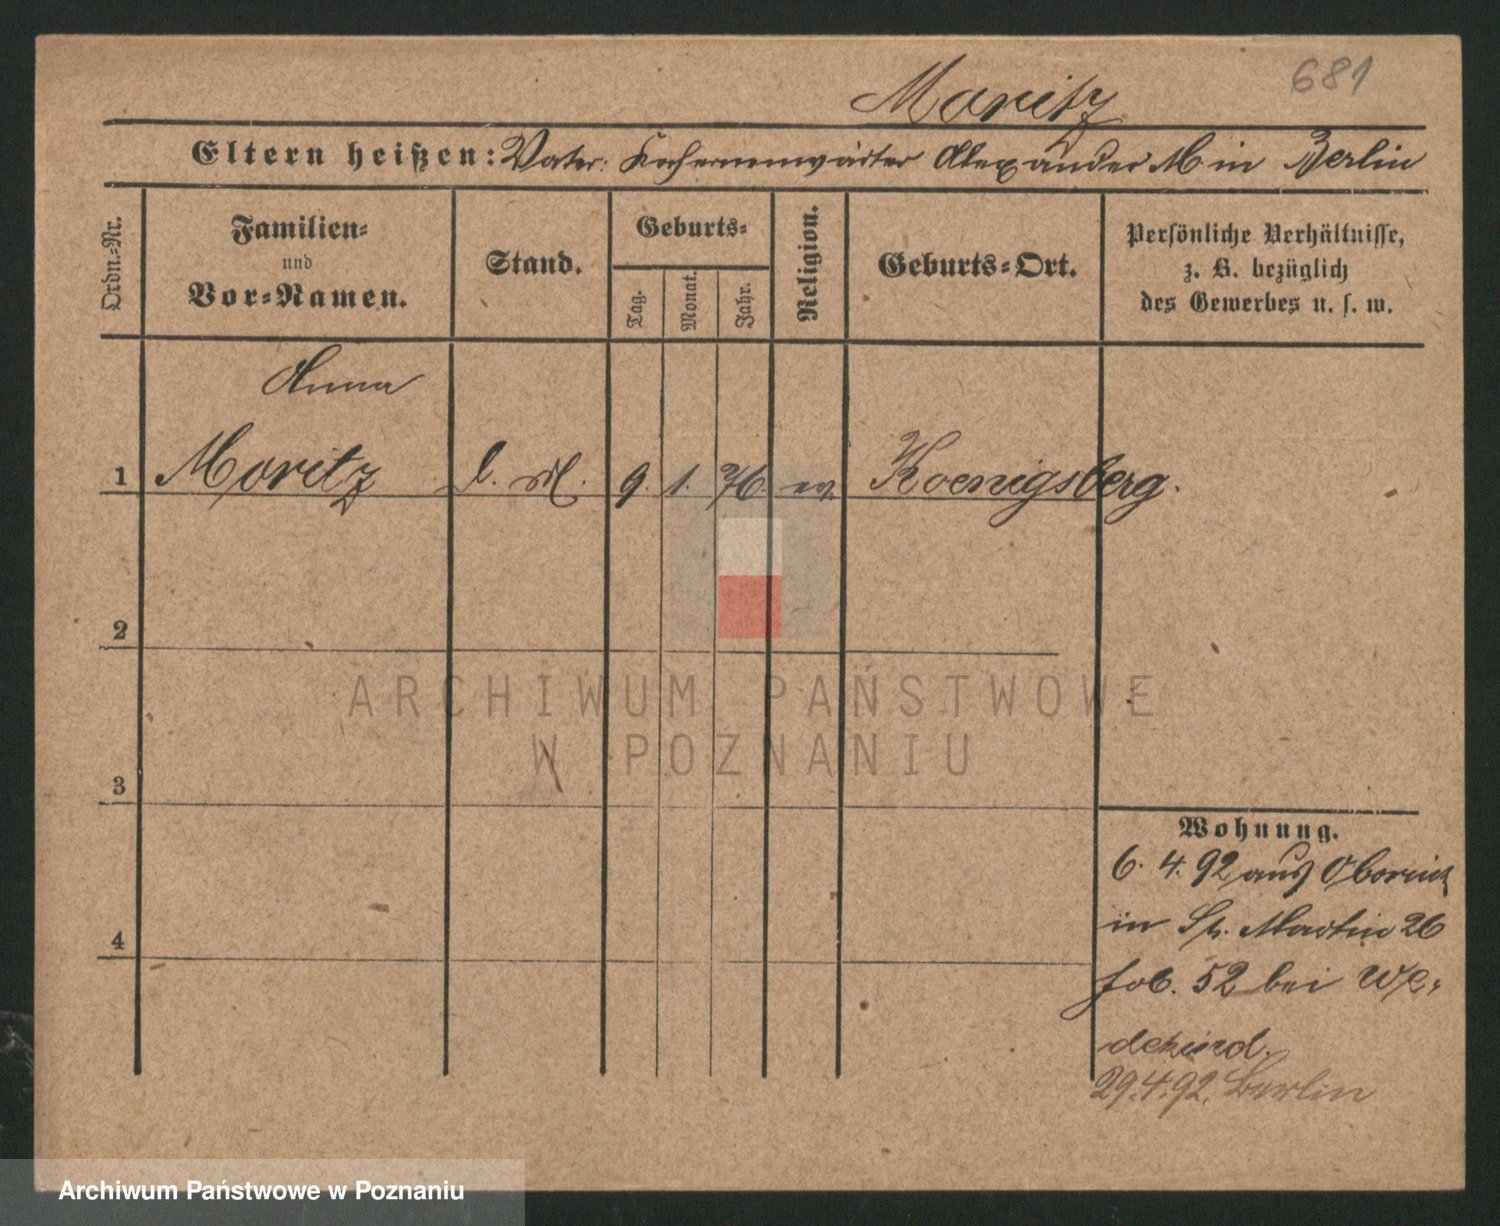 681
Moritz
Eltern heißen: Vater: Alexander M in Berlin
Ordn.-Nr.
Familien-
und
Vor-Namen.
Stand.
Geburts-
Tag.
Monat.
Jahr.
Religion.
Geburts-Ort.
Persönliche Verhältnisse,
z. B. bezüglich
des Gewerbes u. s. w.
Anna
1 Moritz l. M. 9. 1. 76. ev. Koenigsberg.
2
3
4
Wohnung.
6. 4. 92 aus
in St. Martin 26
52 bei
29.4.92. Berlin
ARCHIWUM PAŃSTWOWE
W POZNANIU
Archiwum Państwowe w Poznaniu